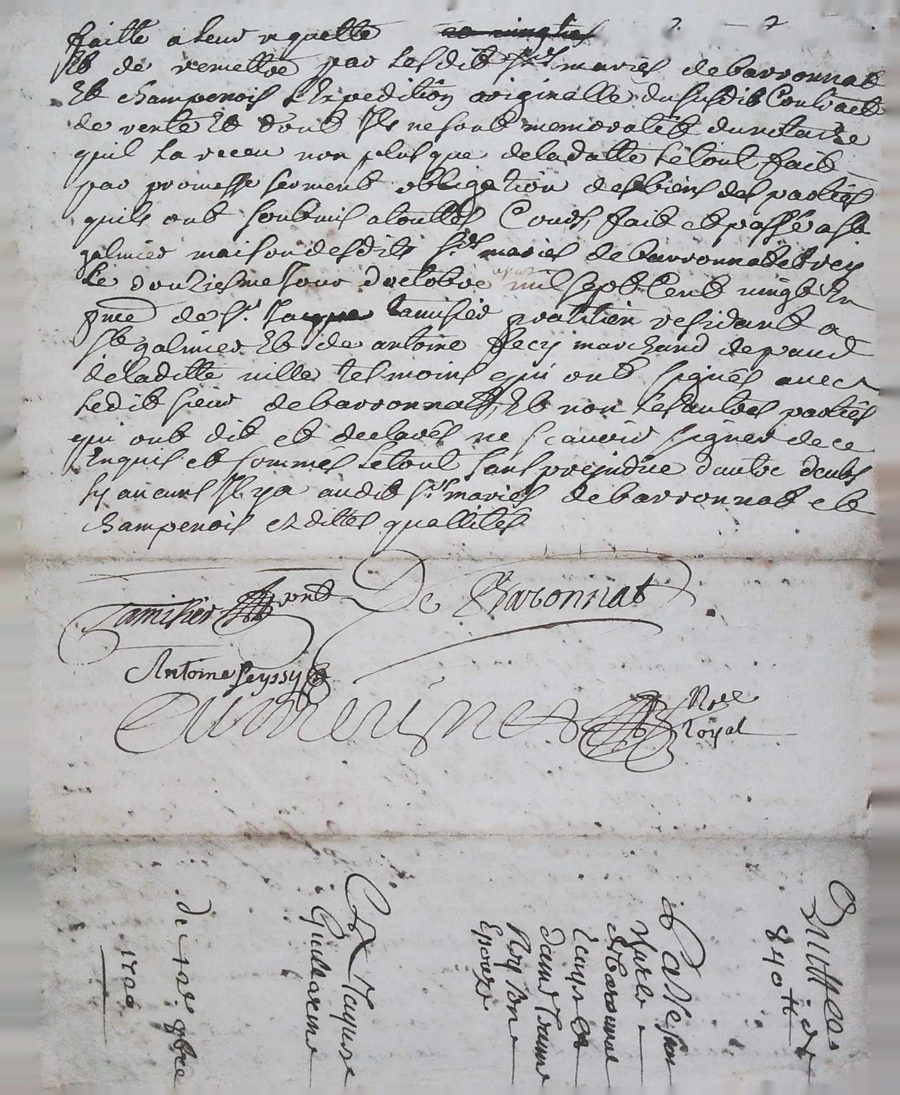 faitte a leur requette
Et de remettre par lesdit srs maries debaronnat
Et champenois l'Expedition originelle dususdit Contract
de vente Et dont Ils ne sont memoratifs du notaire
quil la receu non plus que deladatte le tout fait
par promesse serment obbligation des biens des parties
quils ont soubmis a touttes Cours, fait et passé a st
galmier maison desdits srs maries debaronnat et rey
Le douziesme Jour d'octobre mil sept Cent vingt En
pnce de sr Jacque tamisier pratitien residant a
st galmier Et de antoine marchand
deladitte ville tesmoins qui ont signés avec
ledit sieur debaronnat, Et non les autres parties
qui ont dit et declarés ne scavoir signer de ce
Enquis et sommés le tout sans prejudice d'autre deubs
sy aucuns Il y a audit srs maries debaronnat et
champenois esdittes quallittes
Tamisier De Baronnat
Antoine peyssy
Nore
Royal
840 tt
Marie
debaronnat
Et
dame Jeanne
Rey son
Epouze
Jacques
Guillaume
de 12e 8bre
1720